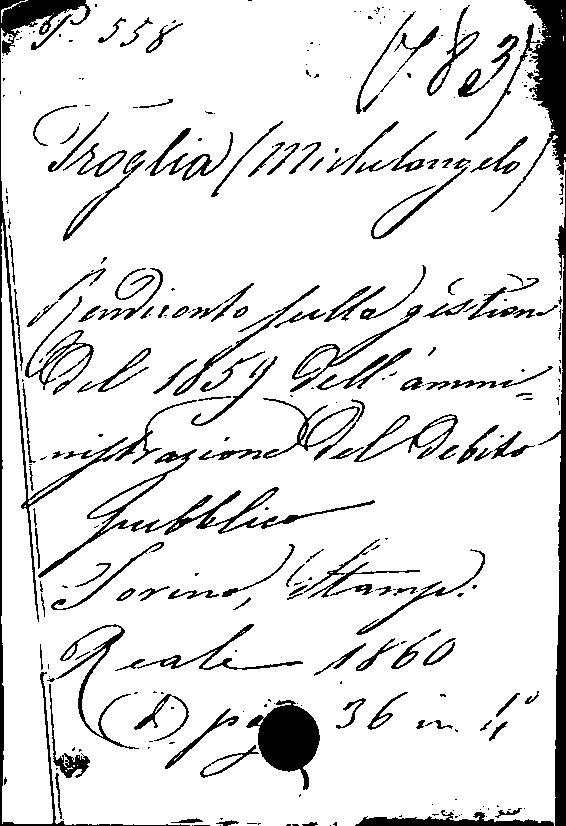 P. 558
(7. 8 e 3)
Troglia (Michelangelo)
Rendiconto sulla gestione
del 1859 dell' ammi=
nistrazione del debito
pubblico
Torino, Stamp.
Reale 1860
di pag 36 in 4°